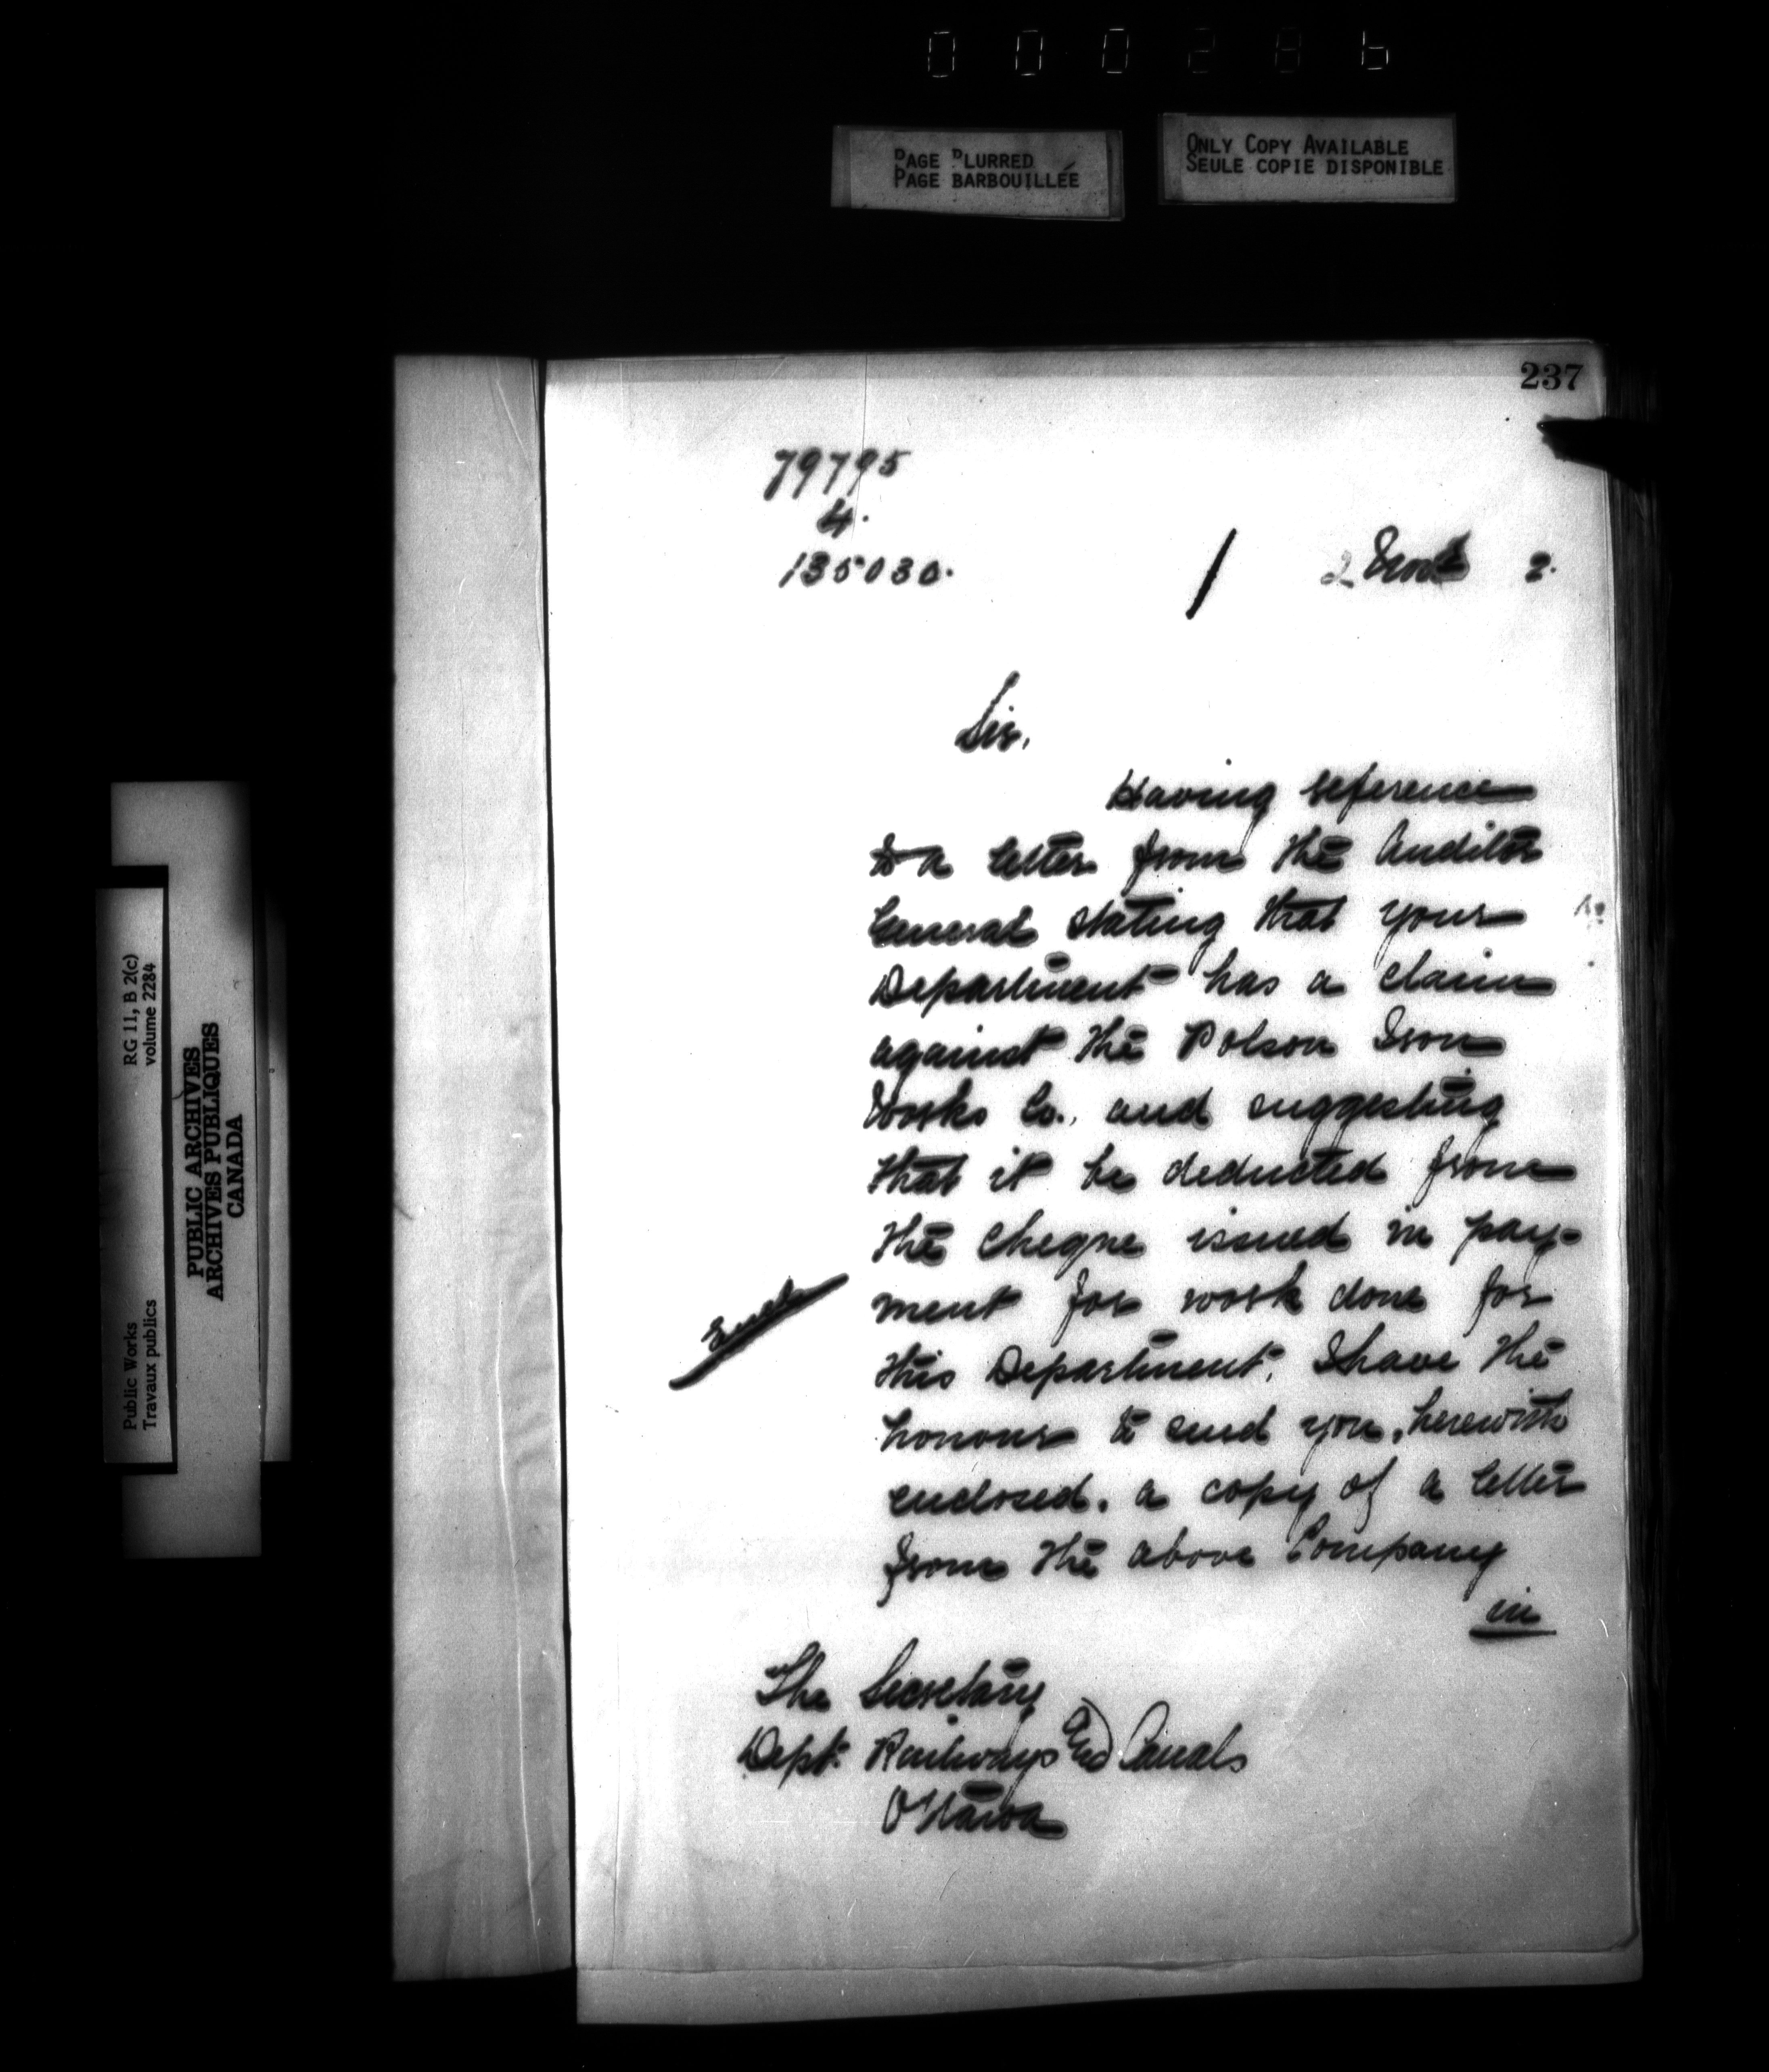 000286
PAGE BLURRED
PAGE BARBOUILLÉE
ONLY COPY AVAILABLE
SEULE COPIE DISPONIBLE
237
79795
4.
135030.
2 2.
Sir,
Having reference
to a letter from the Auditor
General stating that your
Department has a claim
against the Polson Iron
Works Co., and suggesting
that it be deducted from
the cheque issued in pay-
ment for work done for
this Department, I have the
honour to send you, herewith
enclosed, a copy of a letter
from the above Company
in
Encl.
The Secretary
Dept. Railways and Canals
Ottawa
Public Works
Travaux publics
RG 11, B 2(c)
volume 2284
PUBLIC ARCHIVES
ARCHIVES PUBLIQUES
CANADA